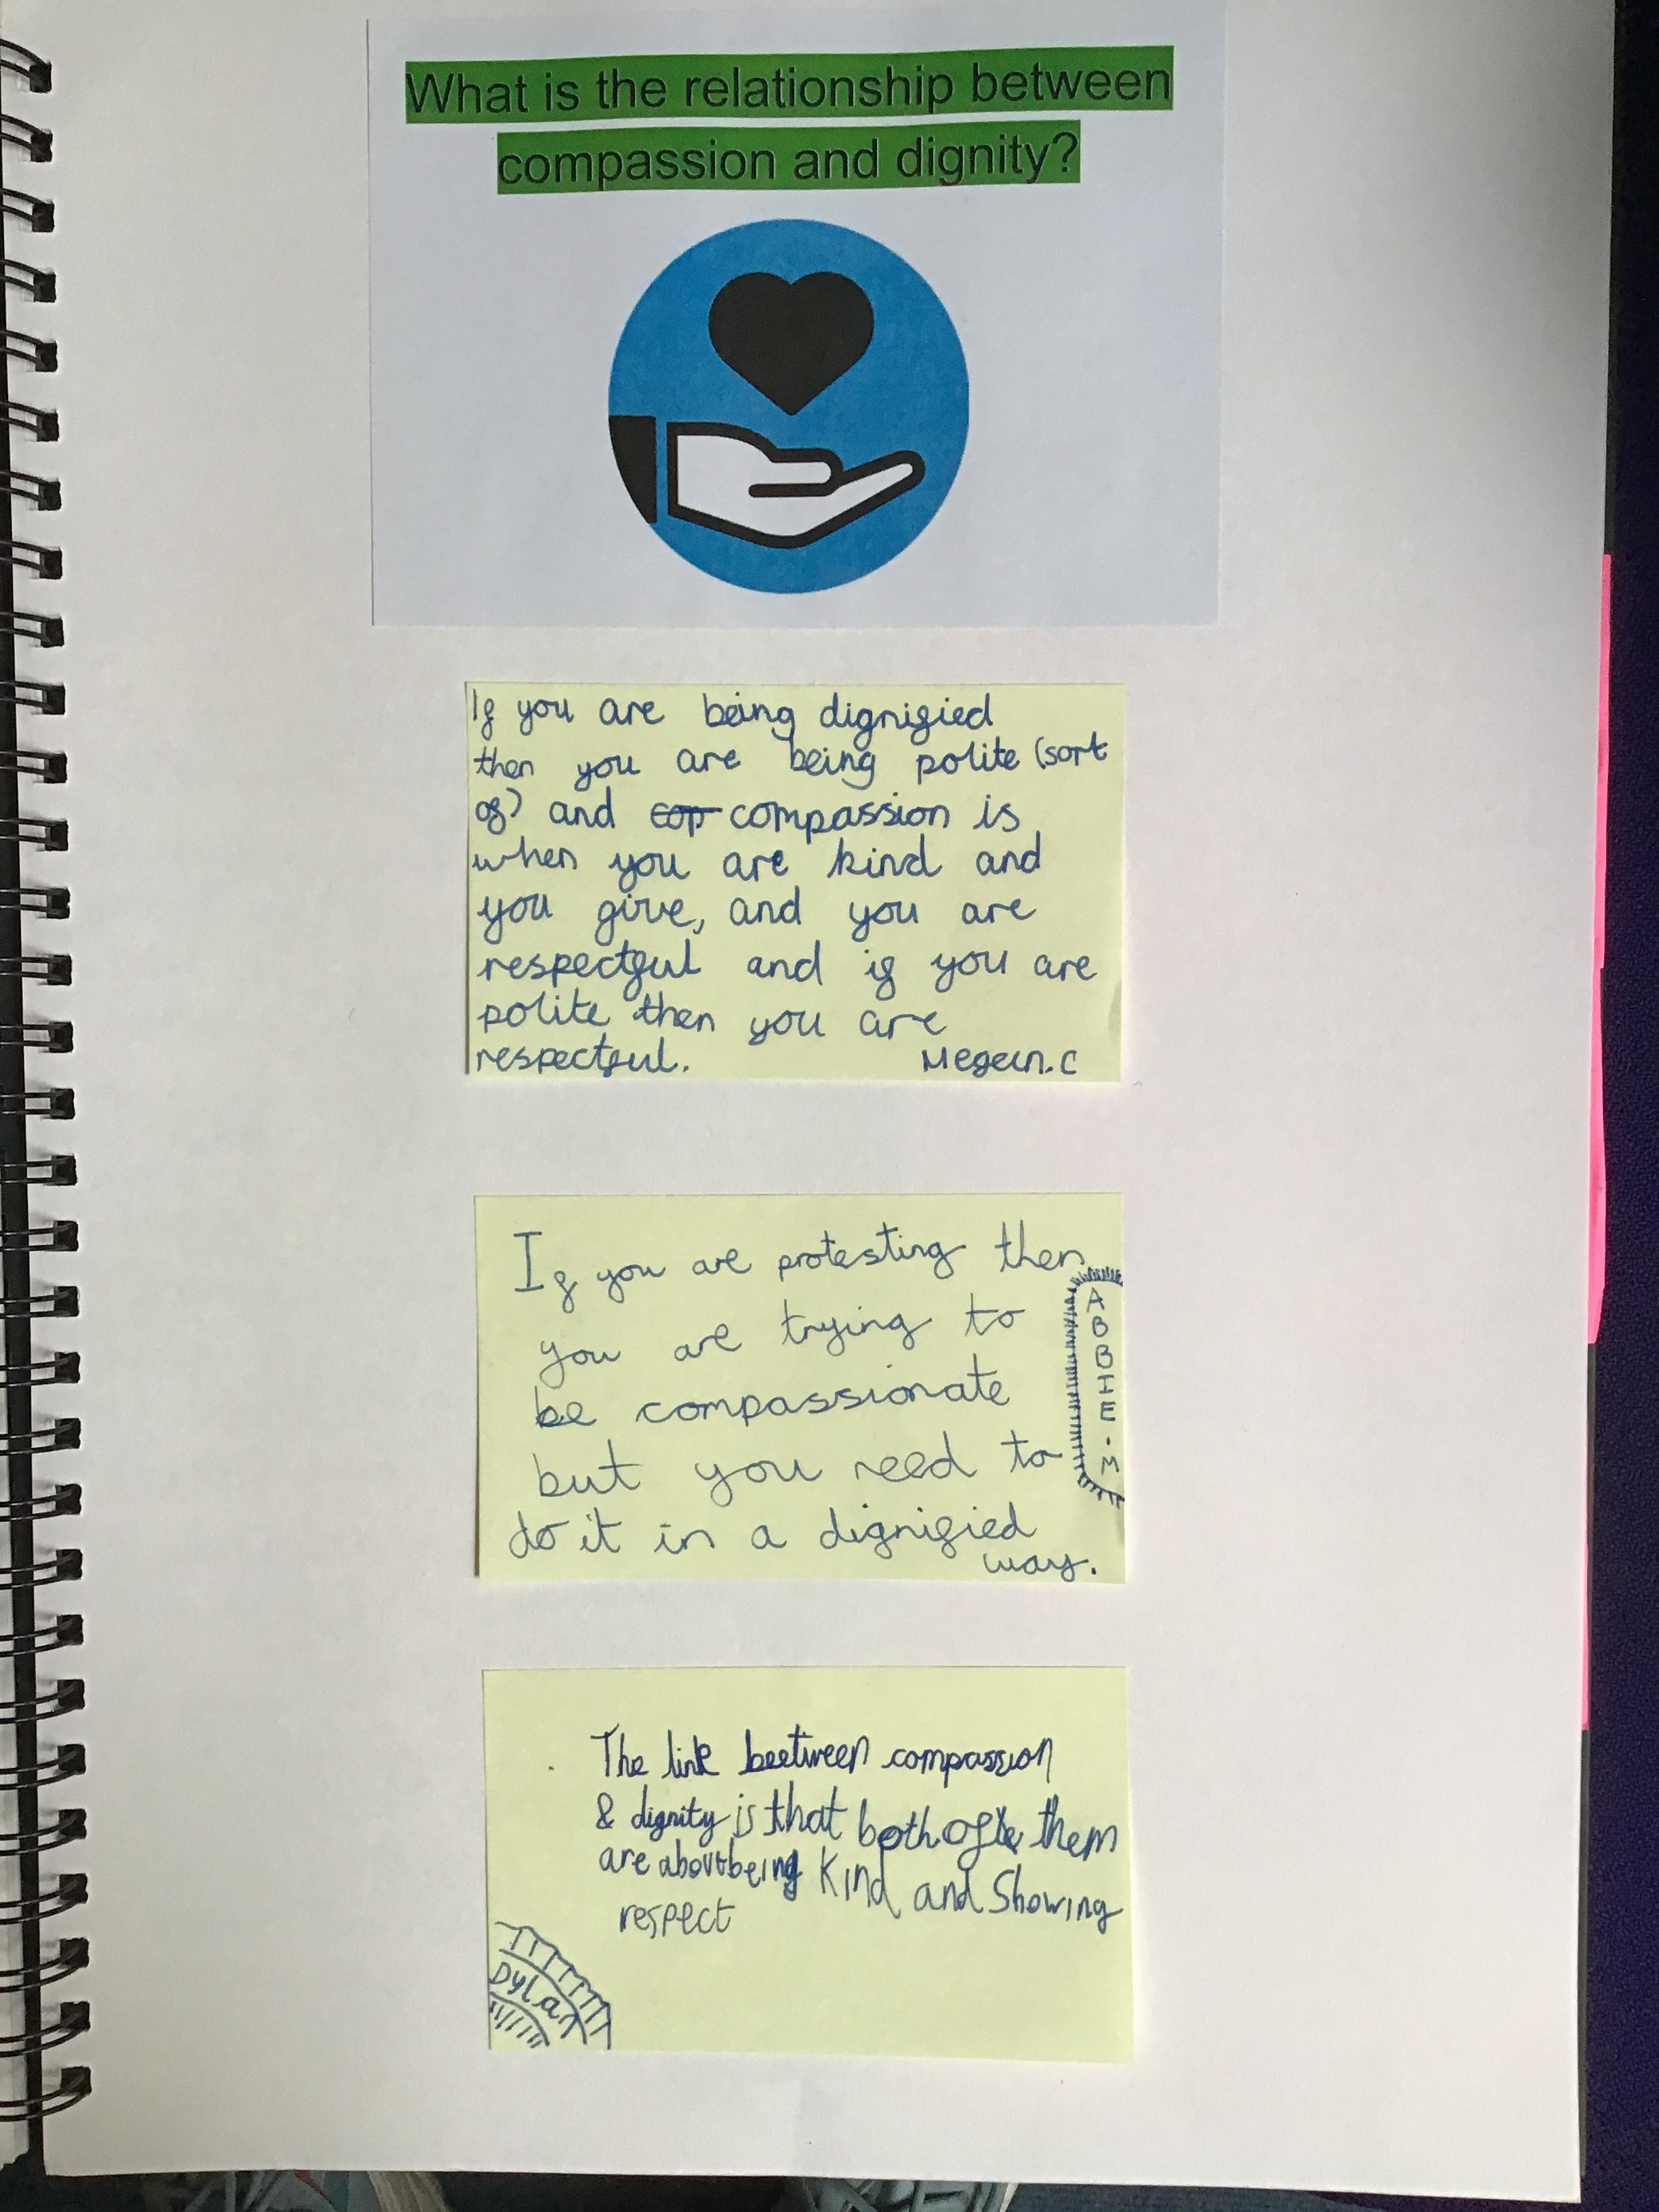 What is the relationship between
compassion and dignity?
If you are being dignified
then you are being polite (sort
of) and cop compassion is
when you are kind and
you give, and you are
respectful and if you are
polite then you are
respectful. Megan.C
If you are protesting then
you are trying to
be compassionate
but you need to
do it in a dignified
way.
ABBIE.M
The link beetween compassion
& dignity is that both of them
are about being kind and showing
respect
Dylan